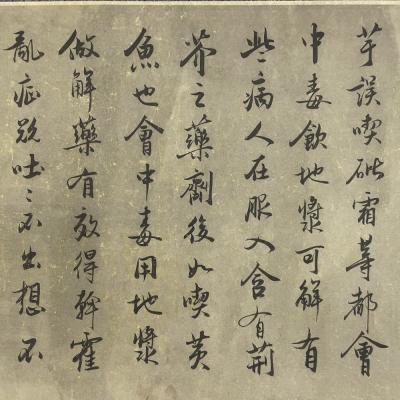 芋誤喫砒霜等都會
中毒飲地漿可解有
些病人在服入含有荊
芥之藥劑後如喫黃
魚也會中毒用地漿
做解藥有效得幹霍
亂症欲吐〻不出想不